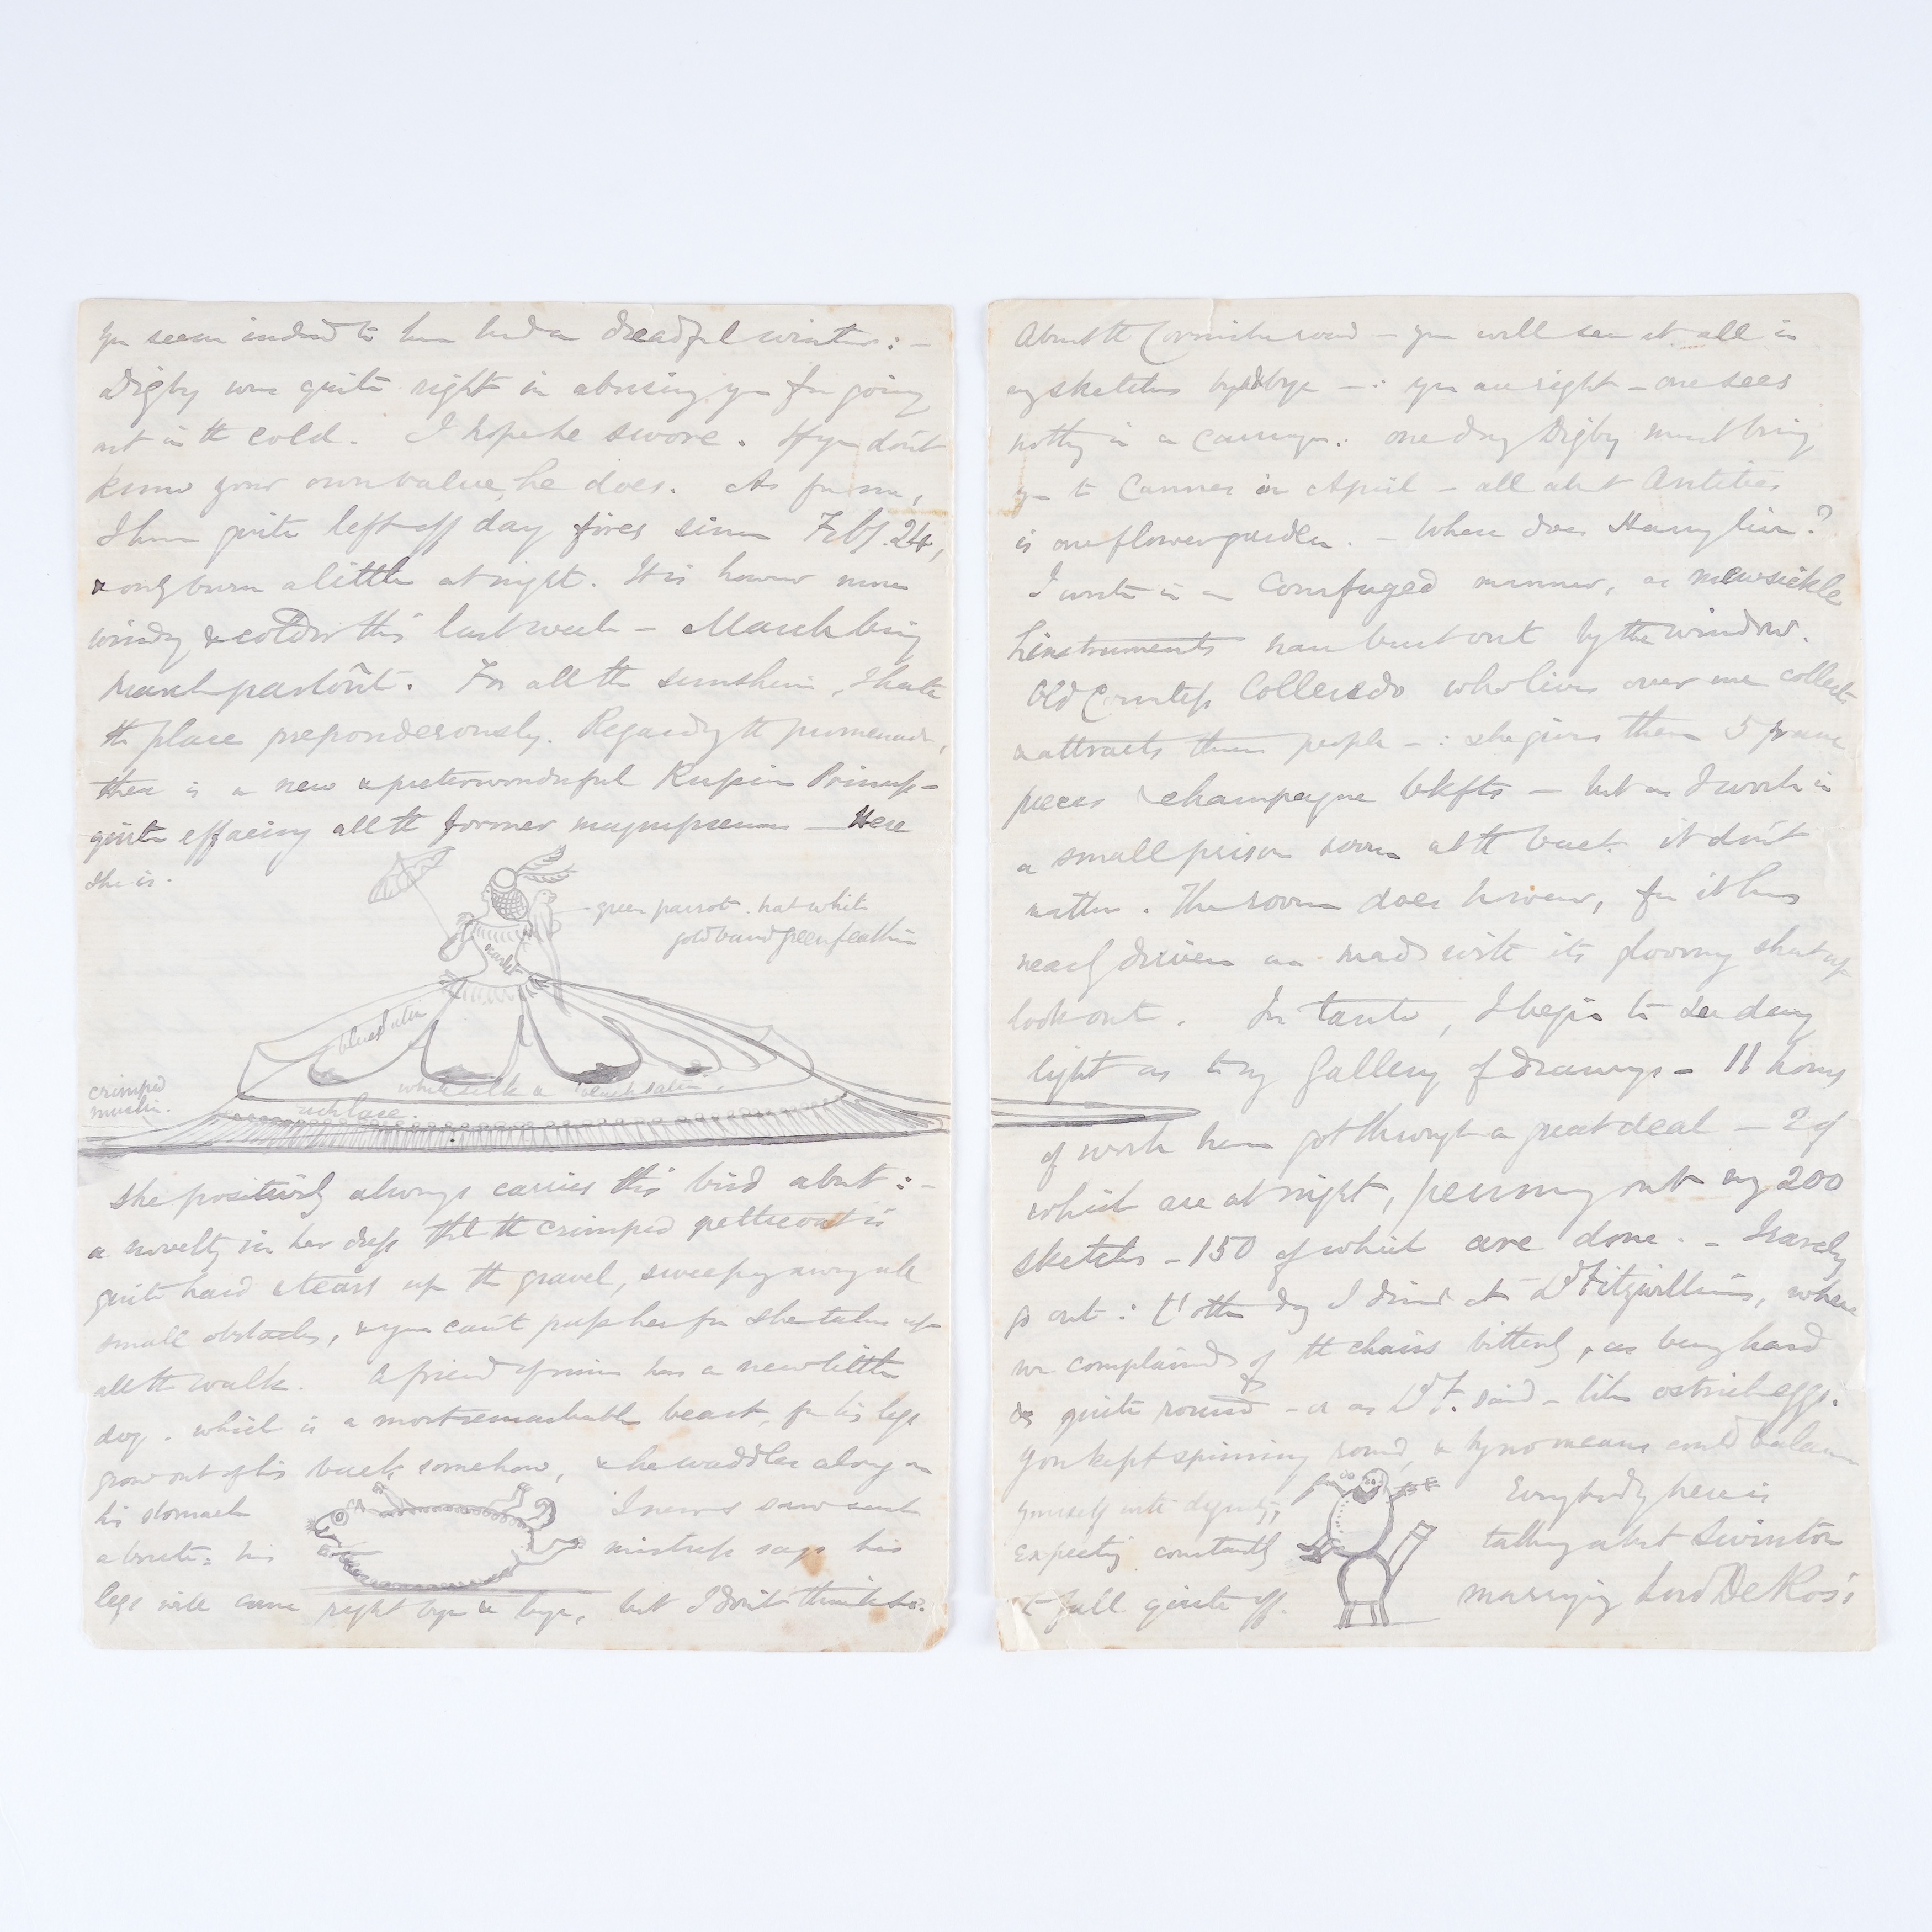 You seem indeed to have had a dreadful winter: –
Digby was quite right in abusing you for going
out in the cold. I hope he swore. If you don't
know your own value, he does. As for me,
I have quite left off day fires since Feby. 24,
& only burn a little at night. It is however more
windy & colder this last week – March being
March partôut. For all the sunshine, I hate
the place preponderously. Regarding the promenade,
there is a new & preterwonderful Russian Princess –
quite effacing all the former magnificences – Here
she is.
green parrot. hat white
gold band green feather
scarlet
blue satin
white silk & black satin.
crimped
muslin.
rich lace.
She positively always carries this bird about: –
a novelty in her dress that the crimped petticoat is
quite hard & tears up the gravel, sweeping away all
small obstacles, & you can't pass her for she takes up
all the walk. A friend of mine has a new little
dog. which is a most remarkable beast, for his legs
grow out of his back somehow, & he waddles along on
his stomach I never saw such
a brute: his mistress says his
legs will come right bye & bye, but I don't think so.
About the Corniche road – you will see it all in
my sketches bye & bye – : you are right – one sees
nothing in a carriage: one day Digby must bring
you to Cannes in April – all about Antibes
is one flower garden. – Where does Harry live?
I write in a comfuged manner, as mewsickle
hinstruments have bust out by the window.
Old Countess Colleredo who lives over me collects
& attracts these people – : she gives them 5 franc
pieces & champagne bkfts – but as I work in
a small prison room at the back it don't
matter. The room does however, for it has
nearly driven me mad with its gloomy shut up
look out. In tanto, I begin to see day
light as to my Gallery of drawings – 11 hours
of work have got through a great deal – 2 of
which are at night, penning out my 200
sketches – 150 of which are done. – I rarely
go out: t'other day I dined at Ld Fitzwilliams, where
we complained of the chairs bitterly, as being hard
& quite round – or as Ld F. said – like ostrich eggs.
You kept spinning round, & by no means could balance
yourself with dignity, Everybody here is
expecting constantly talking about Swinton
to fall quite off. marrying Lord De Ros's